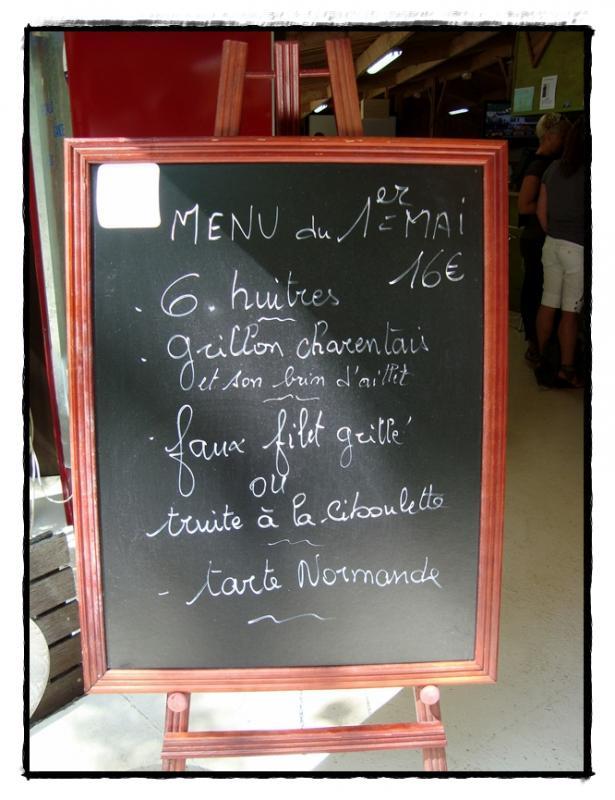 MENU du 1er MAI
16€
. 6. huitres
. grillon charentais
et son brin d'aillet
. faux filet grillé
ou
truite à la ciboulette
- tarte Normande